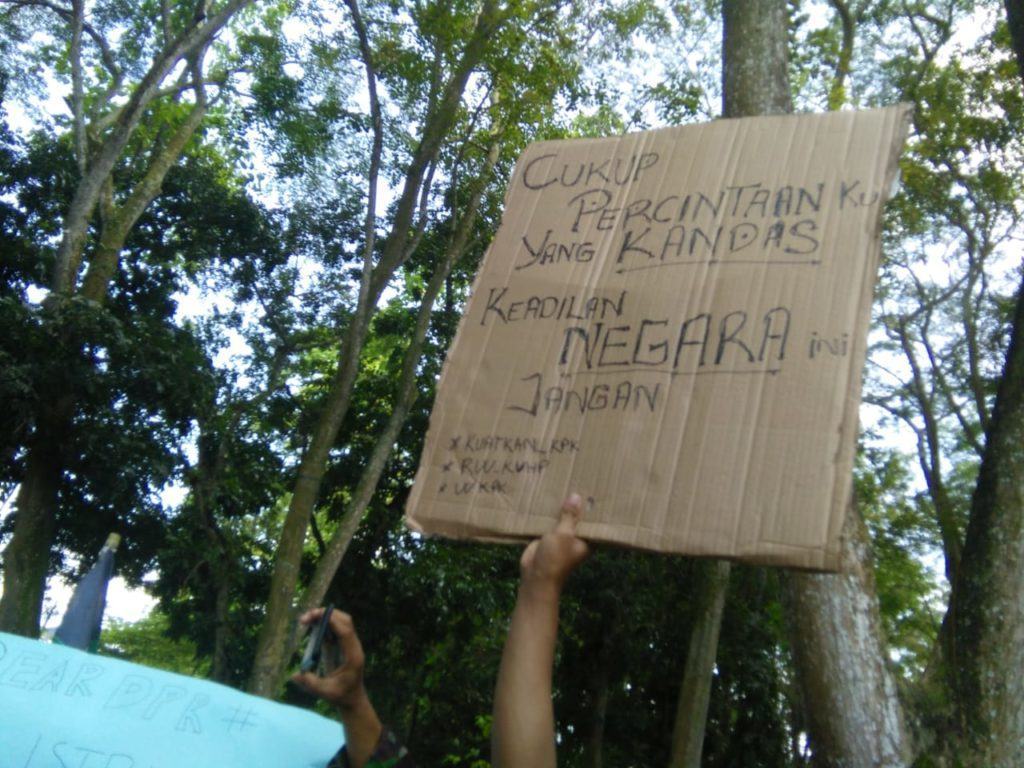 CUKUP
PERCINTAAN KU
YANG KANDAS
KEADILAN
NEGARA ini
JANGAN
* KUATKAN_KPK
* RUU_KUHP
* UUKPK
DEAR DPR #
ISTR